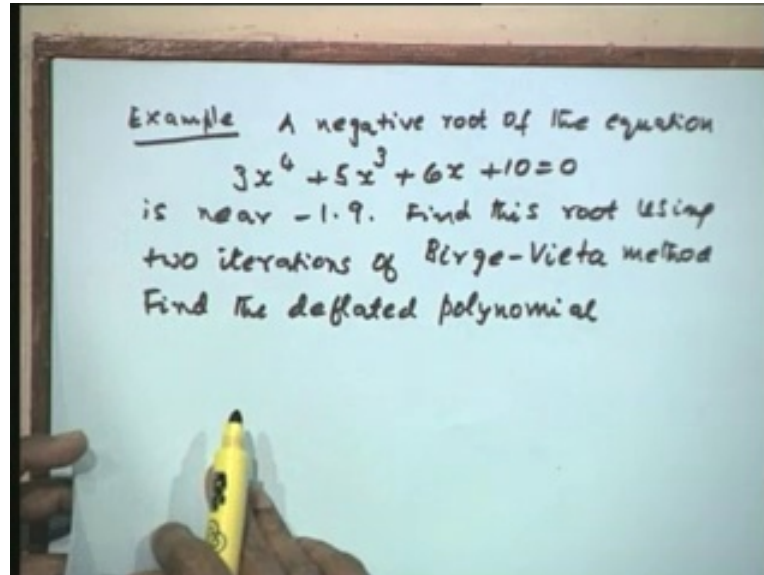 Example A negative root of the equation
3x⁴ + 5x³ + 6x + 10 = 0
is near -1.9. Find this root using
two iterations of Birge-Vieta method
Find the deflated polynomial